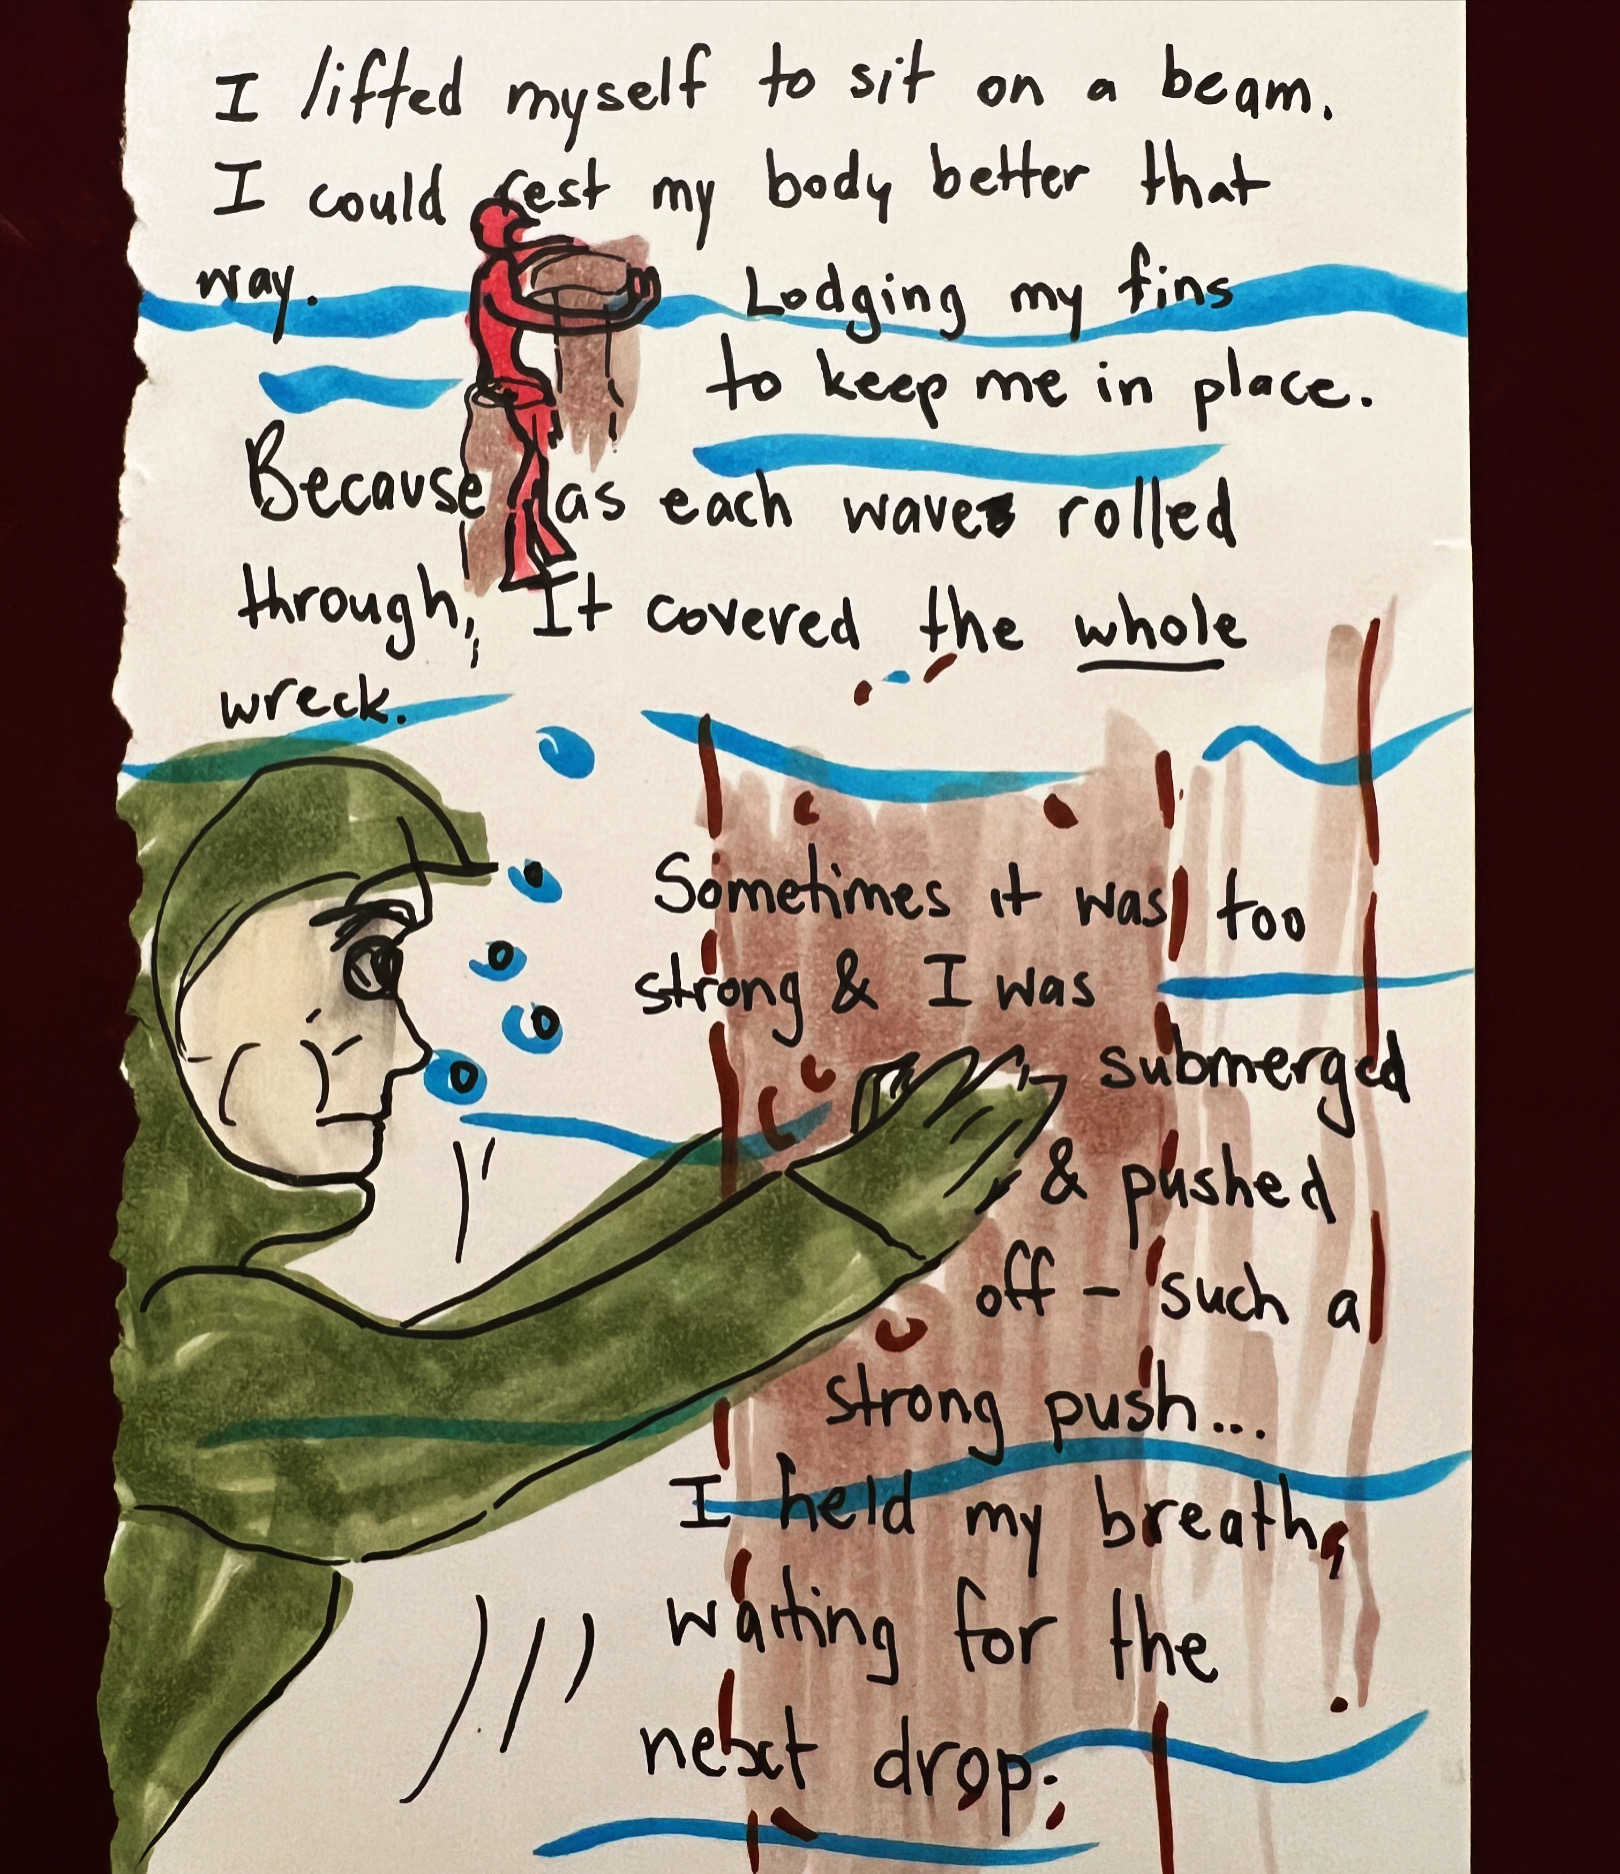 I lifted myself to sit on a beam.
I could rest my body better that
way. Lodging my fins
to keep me in place.
Because as each wave rolled
through, It covered the whole
wreck.
Sometimes it was too
strong & I was
submerged
& pushed
off - such a
strong push...
I held my breath,
waiting for the
next drop.